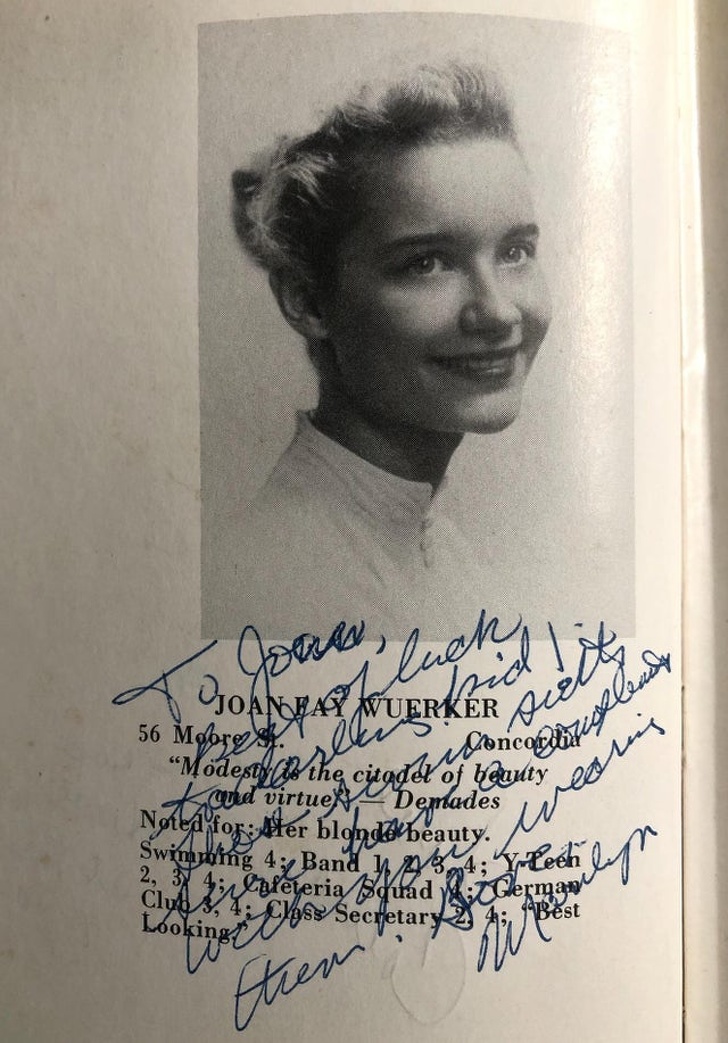 JOAN FAY WUERKER
56 Moore St. Concordia
"Modesty is the citadel of beauty
and virtue" — Demades
Noted for: Her blonde beauty.
Swimming 4; Band 1, 2, 3, 4; Y-Teen
2, 3, 4; Cafeteria Squad 4; German
Club 3, 4; Class Secretary 2, 4; "Best
Looking."
To Joan,
Best of luck
to a darling kid!
swim suits
sure have a
with you wearing
them.
Marilyn